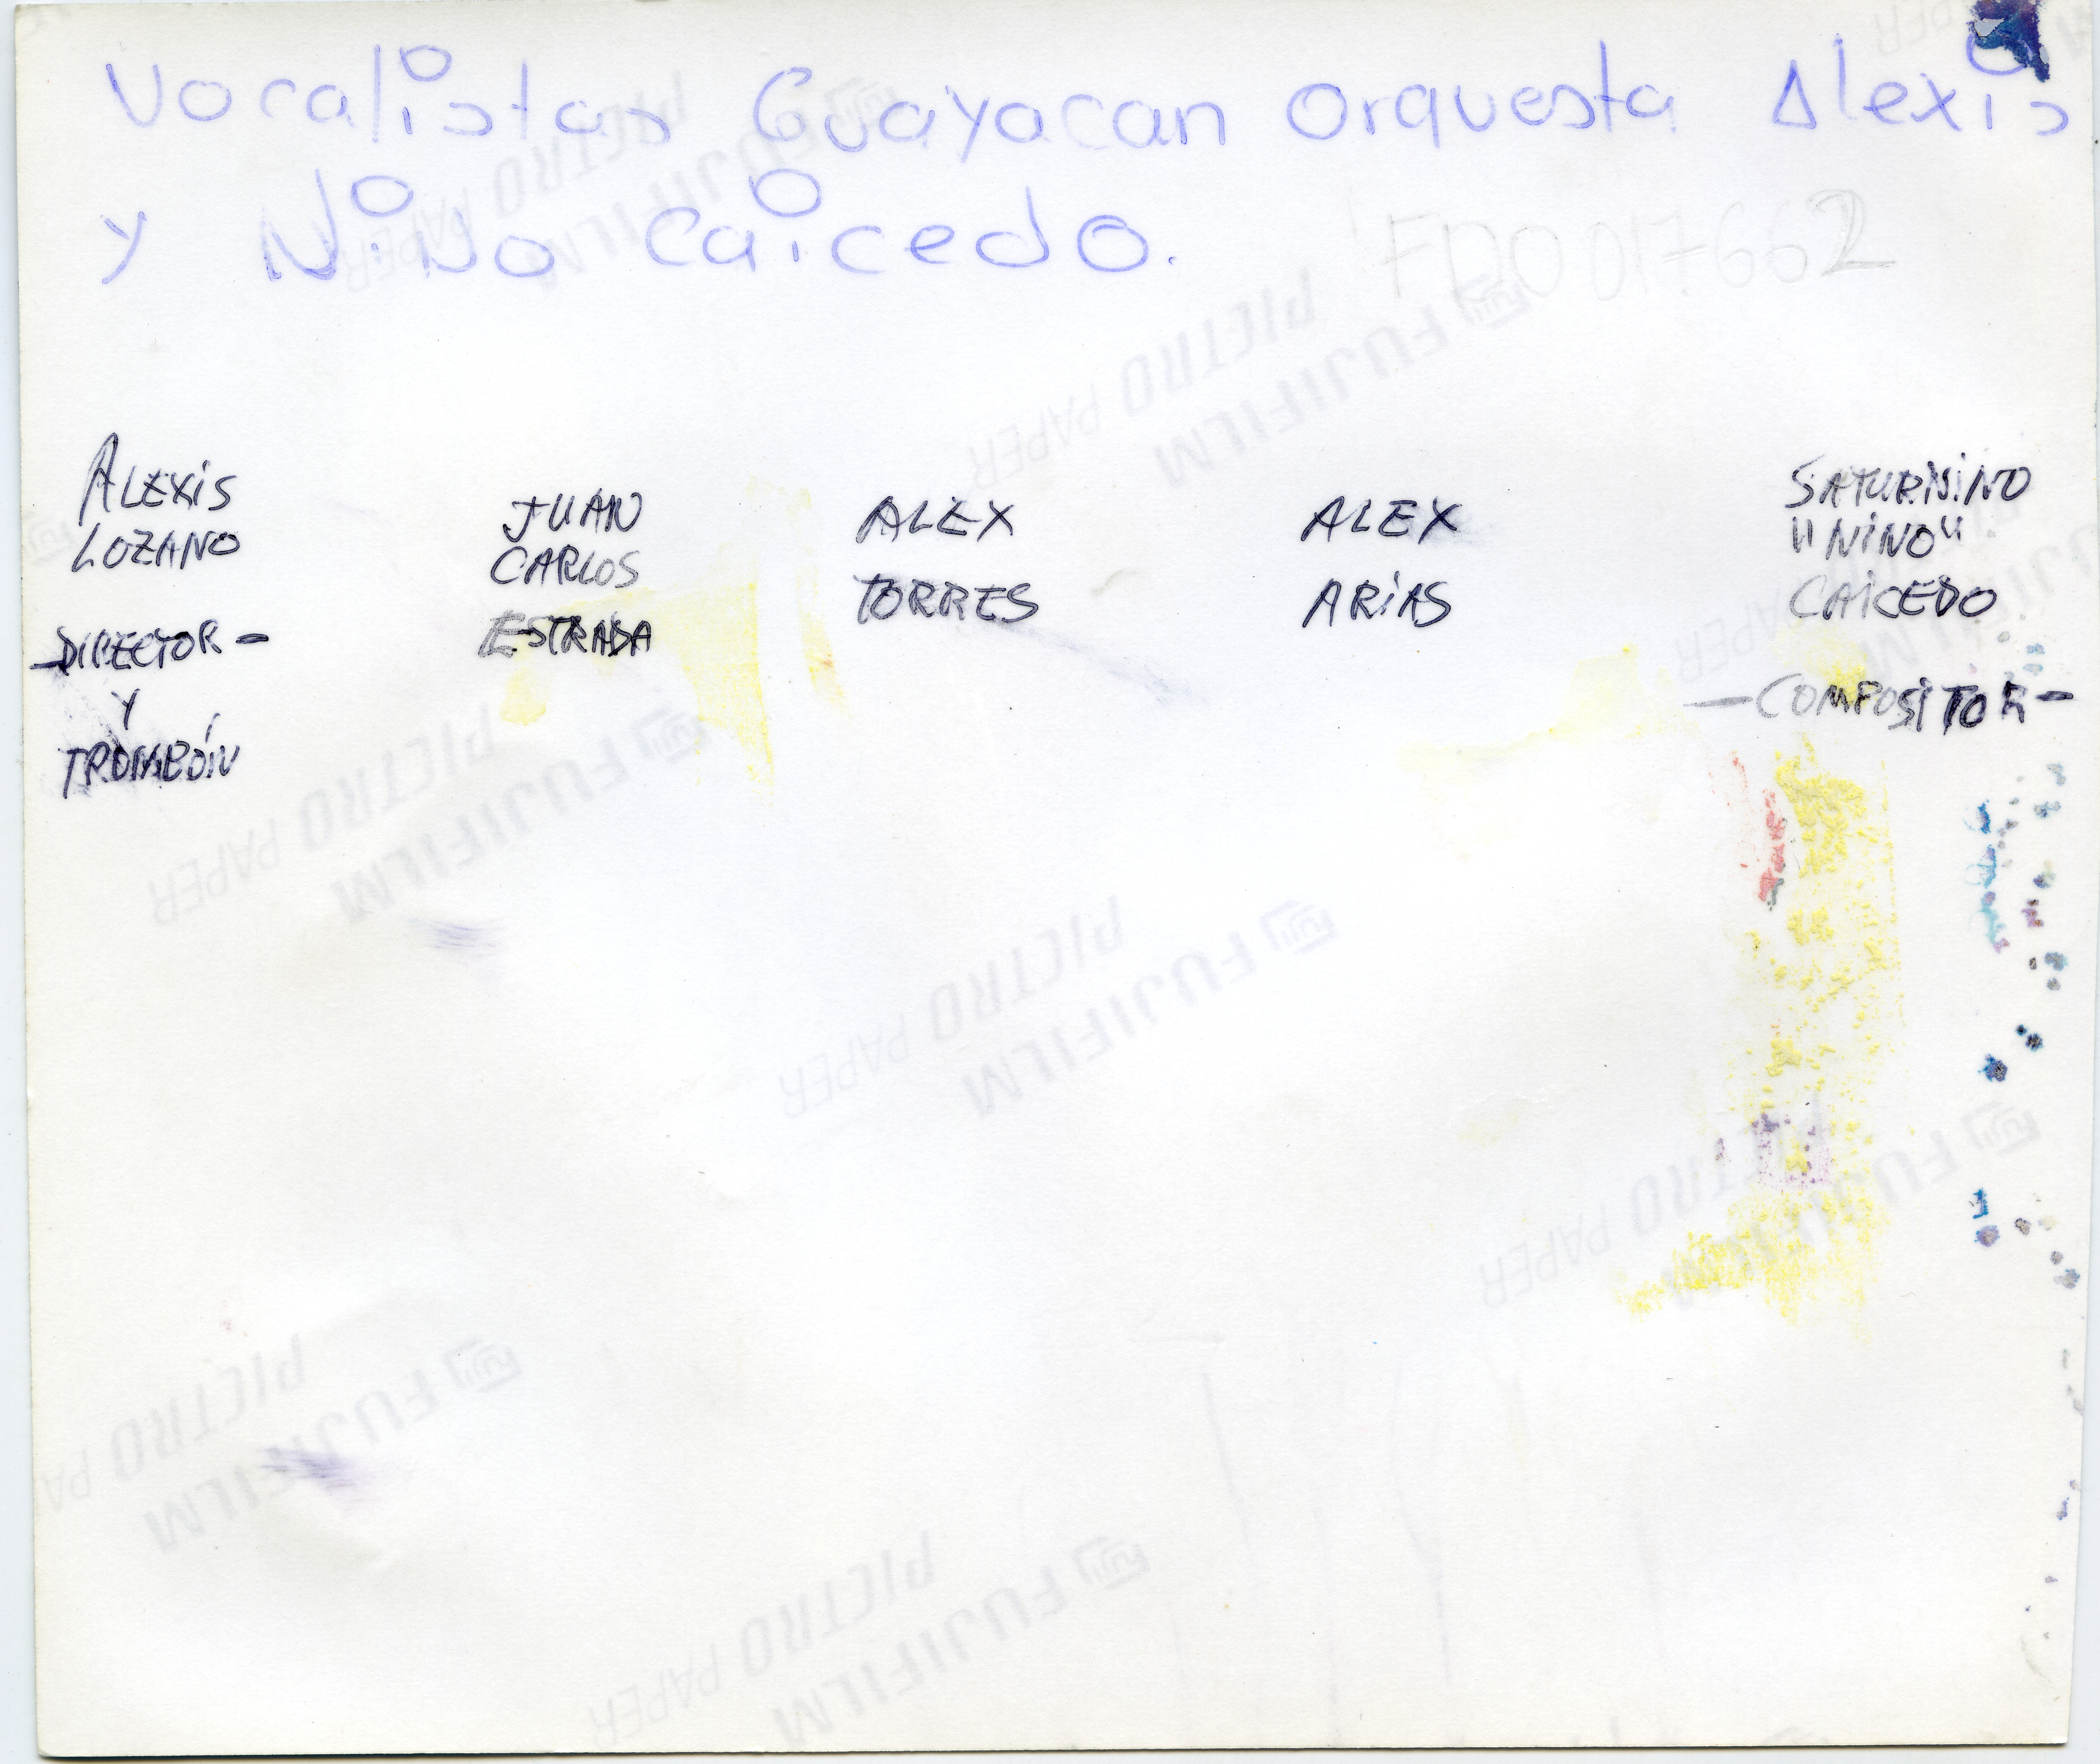 Vocalistas Guayacan Orquesta Alexis
y NiNo Caicedo.
FDO 017662
ALEXIS
LOZANO
-DIRECTOR-
Y
TROMBÓN
JUAN
CARLOS
ESTRADA
ALEX
TORRES
ALEX
ARIAS
SATURNINO
"NINO"
CAICEDO
-COMPOSITOR-
FUJIFILM
PICTRO PAPER
FUJIFILM
PICTRO PAPER
FUJIFILM
PICTRO PAPER
FUJIFILM
PICTRO PAPER
FUJIFILM
PICTRO PAPER
FUJIFILM
PICTRO PA
FUJIFILM
PICTRO PAPER